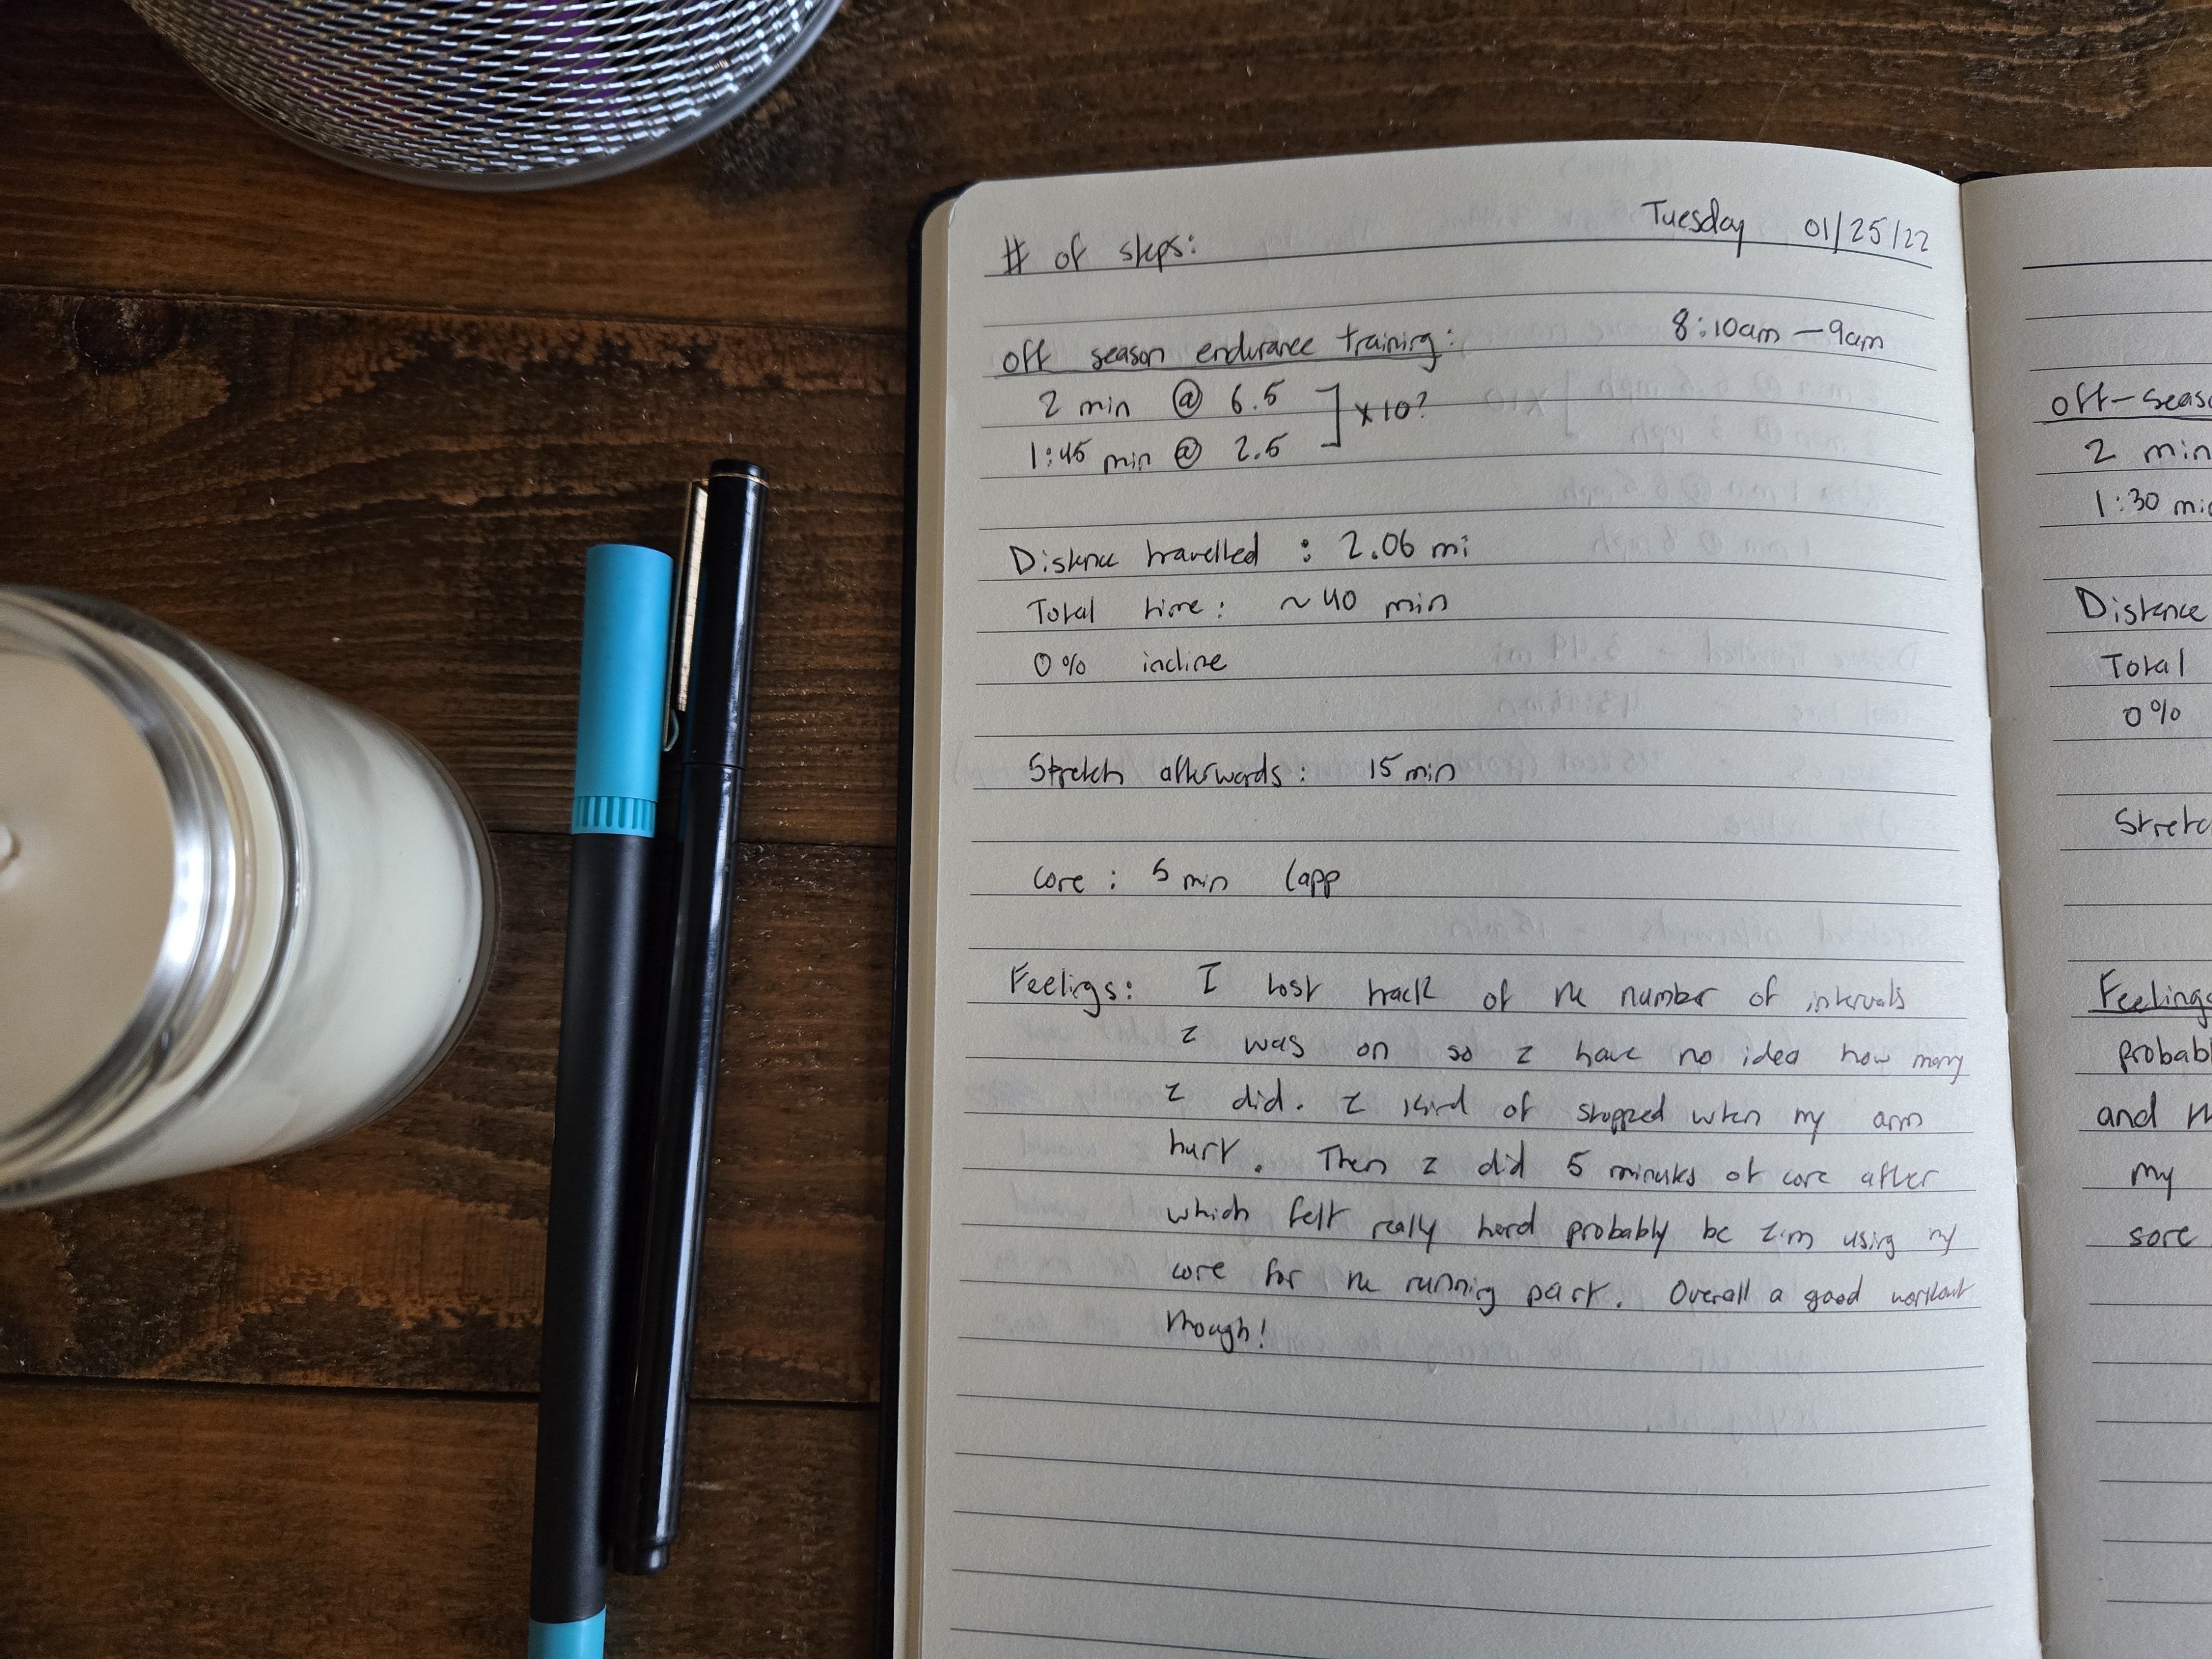 Tuesday 01/25/22
# of steps:
off season endurance training: 8:10am - 9am
2 min @ 6.5 ] x 10?
1:45 min @ 2.5
Distance travelled : 2.06 mi
Total time: ~40 min
0% incline
Stretch afterwards: 15 min
core: 5 min (app
Feelings: I lost track of the number of intervals
I was on so I have no idea how many
I did. I kind of stopped when my arm
hurt. Then I did 5 minutes of core after
which felt really hard probably bc I'm using my
core for the running part. Overall a good workout
though!
off-seas
2 min
1:30 min
Distance
Total
0%
Stretc
Feelings
probabl
and th
my
sore